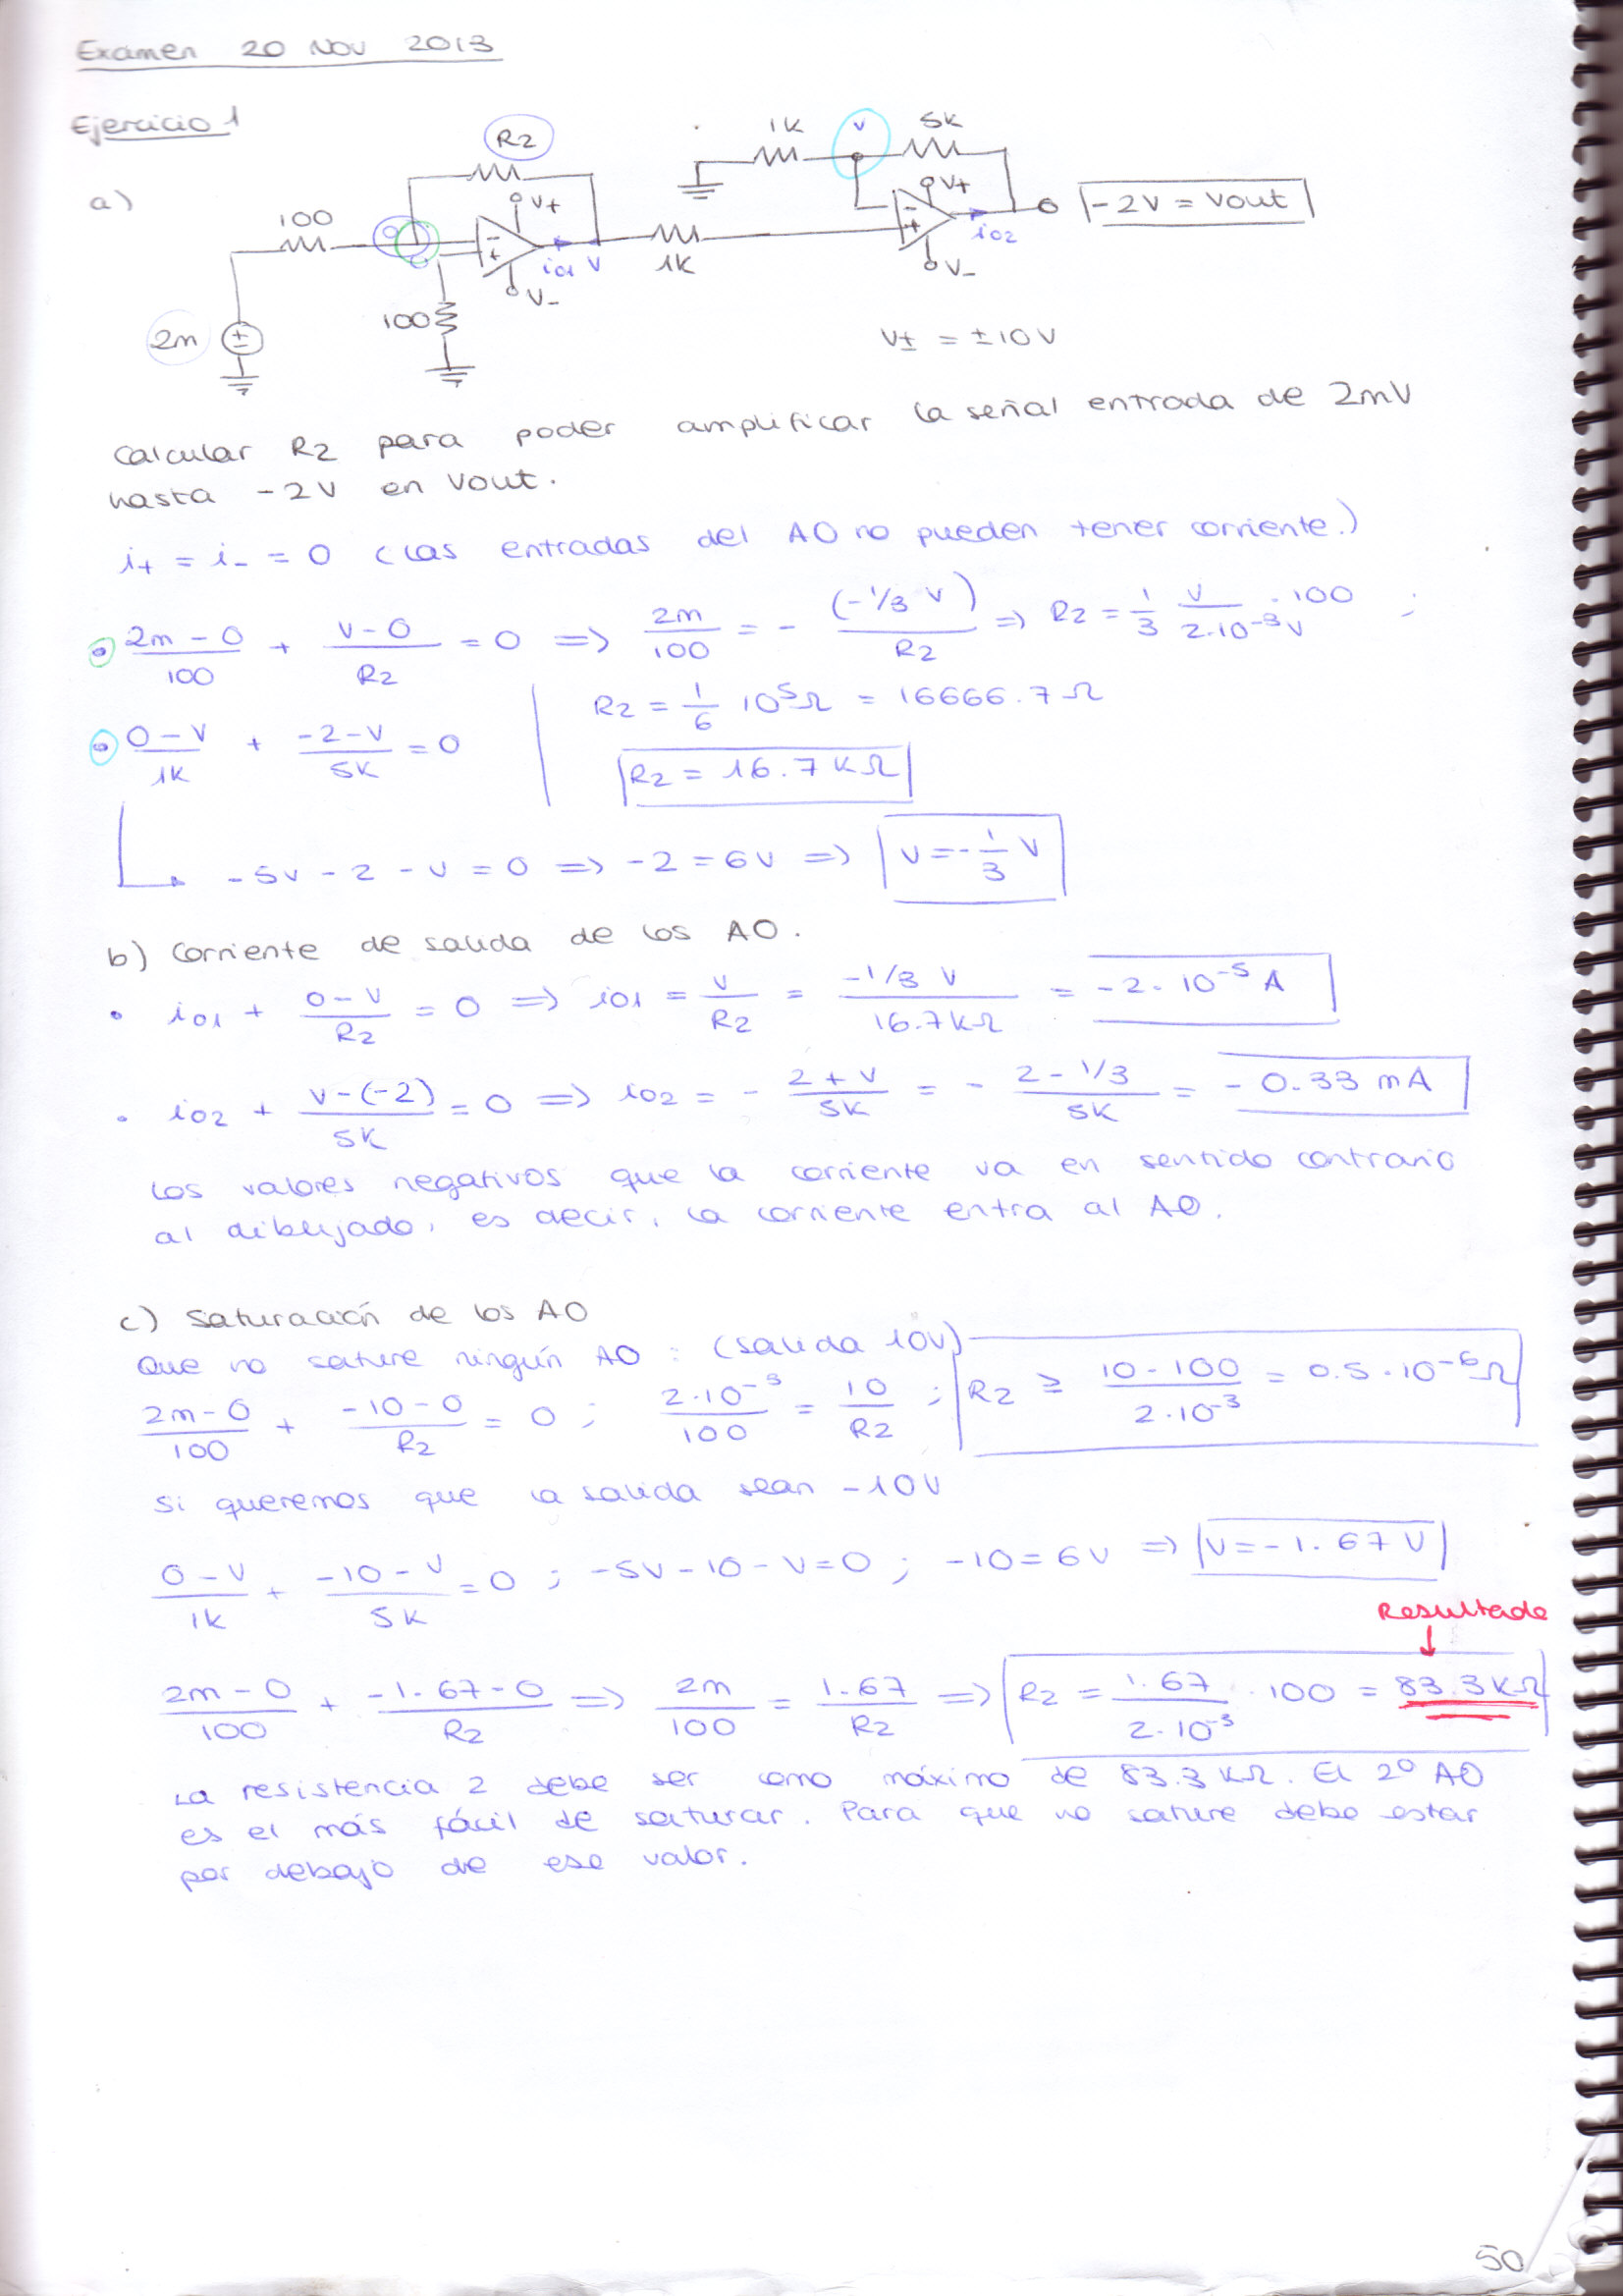 Examen 20 Nov 2013
Ejercicio 1
a)
R2
1K V 5K
100 V+ V+ -2V = Vout
0 i01 V 1K i02
V- V-
2m 100
V± = ±10V
Calcular R2 para poder amplificar la señal entrada de 2mV
hasta -2V en Vout.
i+ = i- = 0 (las entradas del AO no pueden tener corriente.)
(2m-0)/100 + (V-0)/R2 = 0 => 2m/100 = - (-1/3 V)/R2 => R2 = 1/3 V/(2·10^-3 V) · 100 ;
R2 = 1/6 10^5 Ω = 16666.7 Ω
(0-V)/1K + (-2-V)/5K = 0
R2 = 16.7 KΩ
-5V - 2 - V = 0 => -2 = 6V => V = -1/3 V
b) Corriente de salida de los AO.
• i01 + (0-V)/R2 = 0 => i01 = V/R2 = (-1/3 V)/(16.7KΩ) = -2·10^-5 A
• i02 + (V-(-2))/5K = 0 => i02 = - (2+V)/5K = - (2-1/3)/5K = -0.33 mA
Los valores negativos que la corriente va en sentido contrario
al dibujado, es decir, la corriente entra al AO.
c) Saturación de los AO
Que no sature ningún AO : (salida 10V)
(2m-0)/100 + (-10-0)/R2 = 0 ; 2·10^-3/100 = 10/R2 ; R2 ≥ (10·100)/(2·10^-3) = 0.5·10^-6 Ω
Si queremos que la salida sean -10V
(0-V)/1K + (-10-V)/5K = 0 ; -5V-10-V=0 ; -10=6V => V=-1.67 V
Resultado
(2m-0)/100 + (-1.67-0)/R2 => 2m/100 = 1.67/R2 => R2 = 1.67/(2·10^-3) · 100 = 83.3KΩ
La resistencia 2 debe ser como máximo de 83.3 KΩ. El 2º AO
es el más fácil de saturar. Para que no sature debe estar
por debajo de ese valor.
50